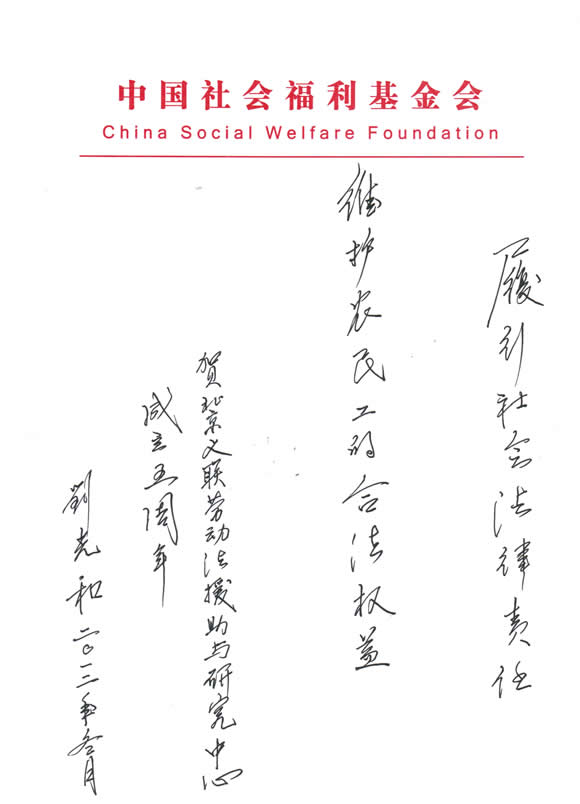 中国社会福利基金会
China Social Welfare Foundation
履行社会法律责任
维护农民工的合法权益
贺北京义联劳动法援助与研究中心
成立五周年
劉光和二〇一二年冬月